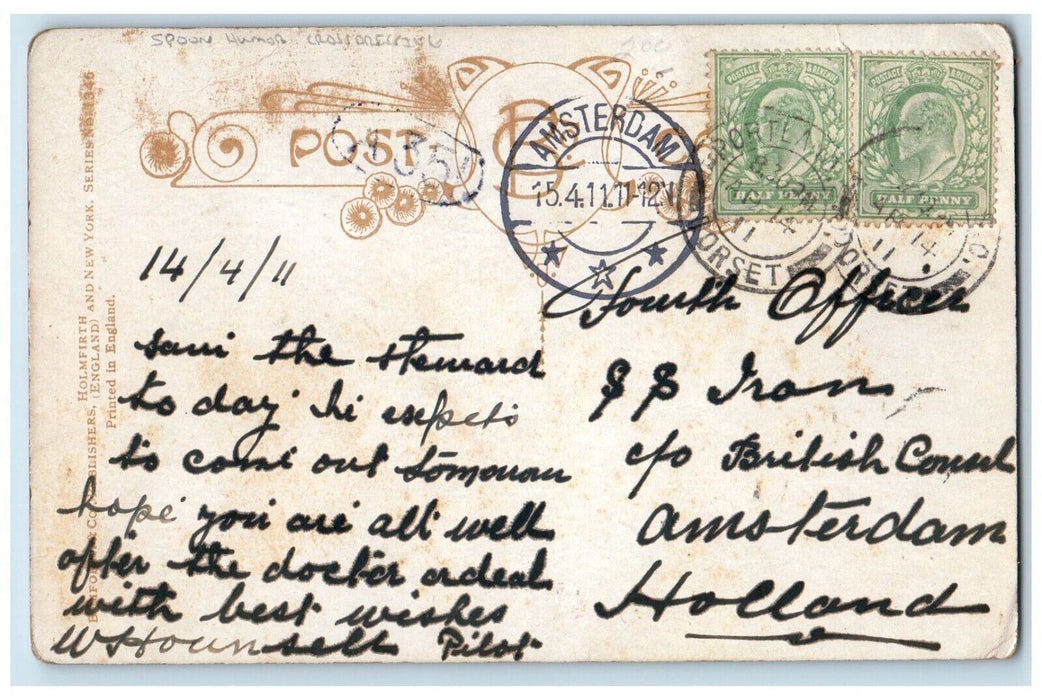 SPOON HUMOR CROSSDRESSING
200
POST
AMSTERDAM
15.4.11.11-12V
PORTLAND
DORSET
14
11
POSTAGE & REVENUE
HALF PENNY
POSTAGE & REVENUE
HALF PENNY
14
11
HOLMFIRTH
PUBLISHERS, (ENGLAND) AND NEW YORK. SERIES No. 1346
Printed in England.
14/4/11
saw the steward
to day he expects
to come out tomorrow
hope you are all well
after the doctor ordeal
with best wishes
W Hounsell Pilot
Fourth Officer
SS Iran
c/o British Consul
Amsterdam
Holland